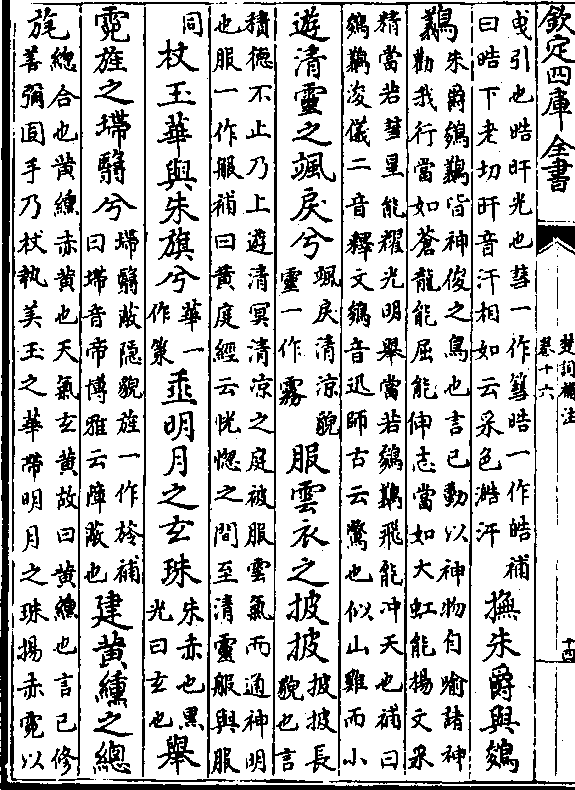 欽定四庫全書
楚詞補注
卷十六
十四
曵引也晧旰光也彗一作篲晧一作皓補
曰晧下老切旰音汗相如云采色澔汗
撫朱爵與鵔
鸃
朱爵鵔鸃皆神俊之鳥也言已動以神物自喻諸神
勸我行當如蒼龍能屈能伸志當如大虹能揚文采
精當若彗星能耀光明舉當若鵔鸃飛能冲天也補曰
鵔鸃浚儀二音釋文鵔音迅師古云鷩也似山雞而小
遊清靈之颯戾兮
颯戾清凉貌
靈一作霧
服雲衣之披披
披披長
貌也言
積德不止乃上遊清冥清凉之庭被服雲氣而通神明
也服一作服補曰黄庭經云恍惚之間至清靈服與服
同
杖玉華與朱旗兮
華一
作策
垂明月之玄珠
朱赤也黑
光曰玄也
舉
霓旌之墆翳兮
墆翳蔽隱貌旌一作旍補
曰墆音帝博雅云障蔽也
建黄纁之總
旄
總合也黄纁赤黄也天氣玄黄故曰黄纁也言已修
善彌固手乃杖執美玉之華帶明月之珠揚赤霓以